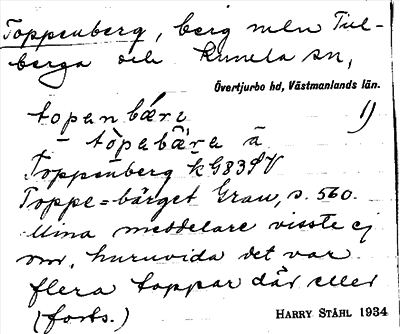 Toppenberg, berg mln Tul-
berga och Kumla sn,
Övertjurbo hd, Västmanlands län.
topan bære 1)
– tòpabæ̀ra ä
Toppenberg k G83SV
Toppe=bärget Grau, s. 560.
Mina meddelare visste ej
om, huruvida det var
flera toppar där eller
(forts.)
HARRY STÅHL 1934